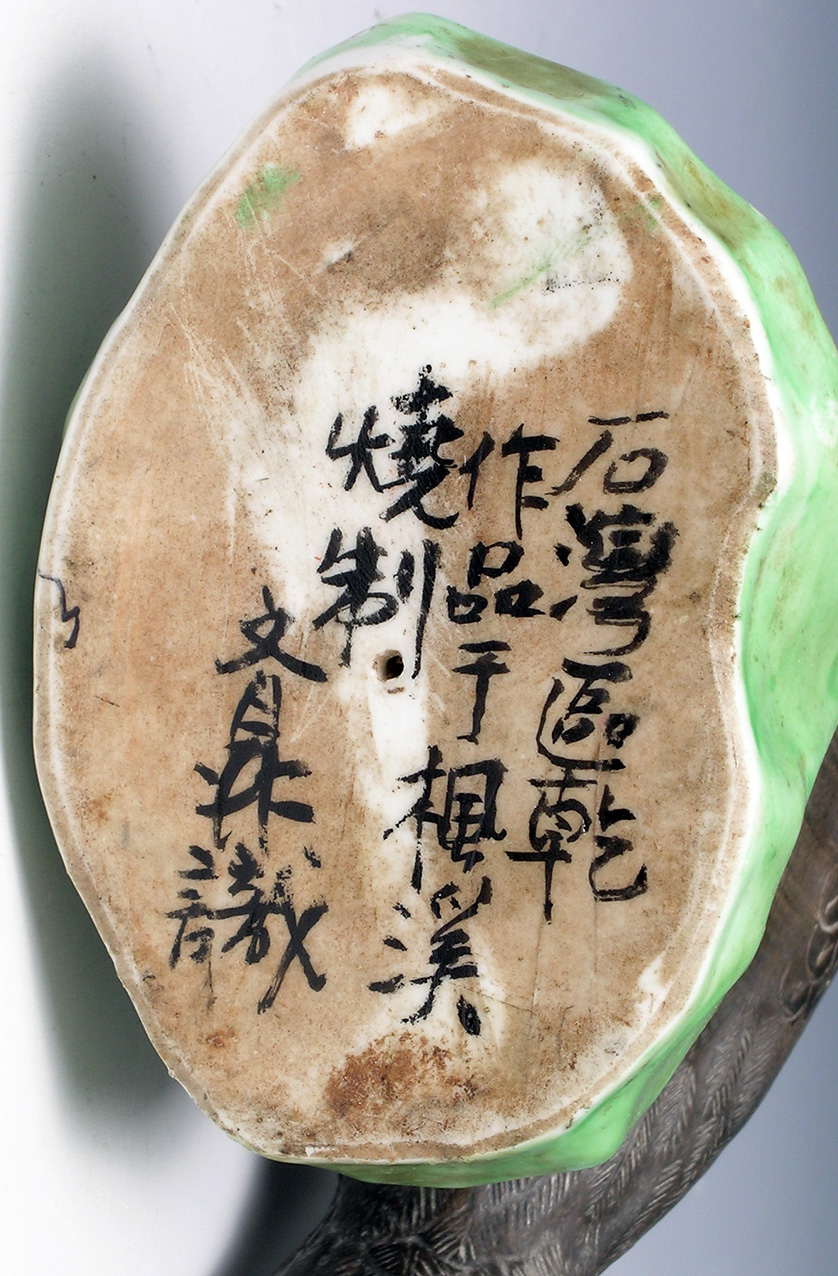 石灣區乾
作品于楓溪
燒制
文識